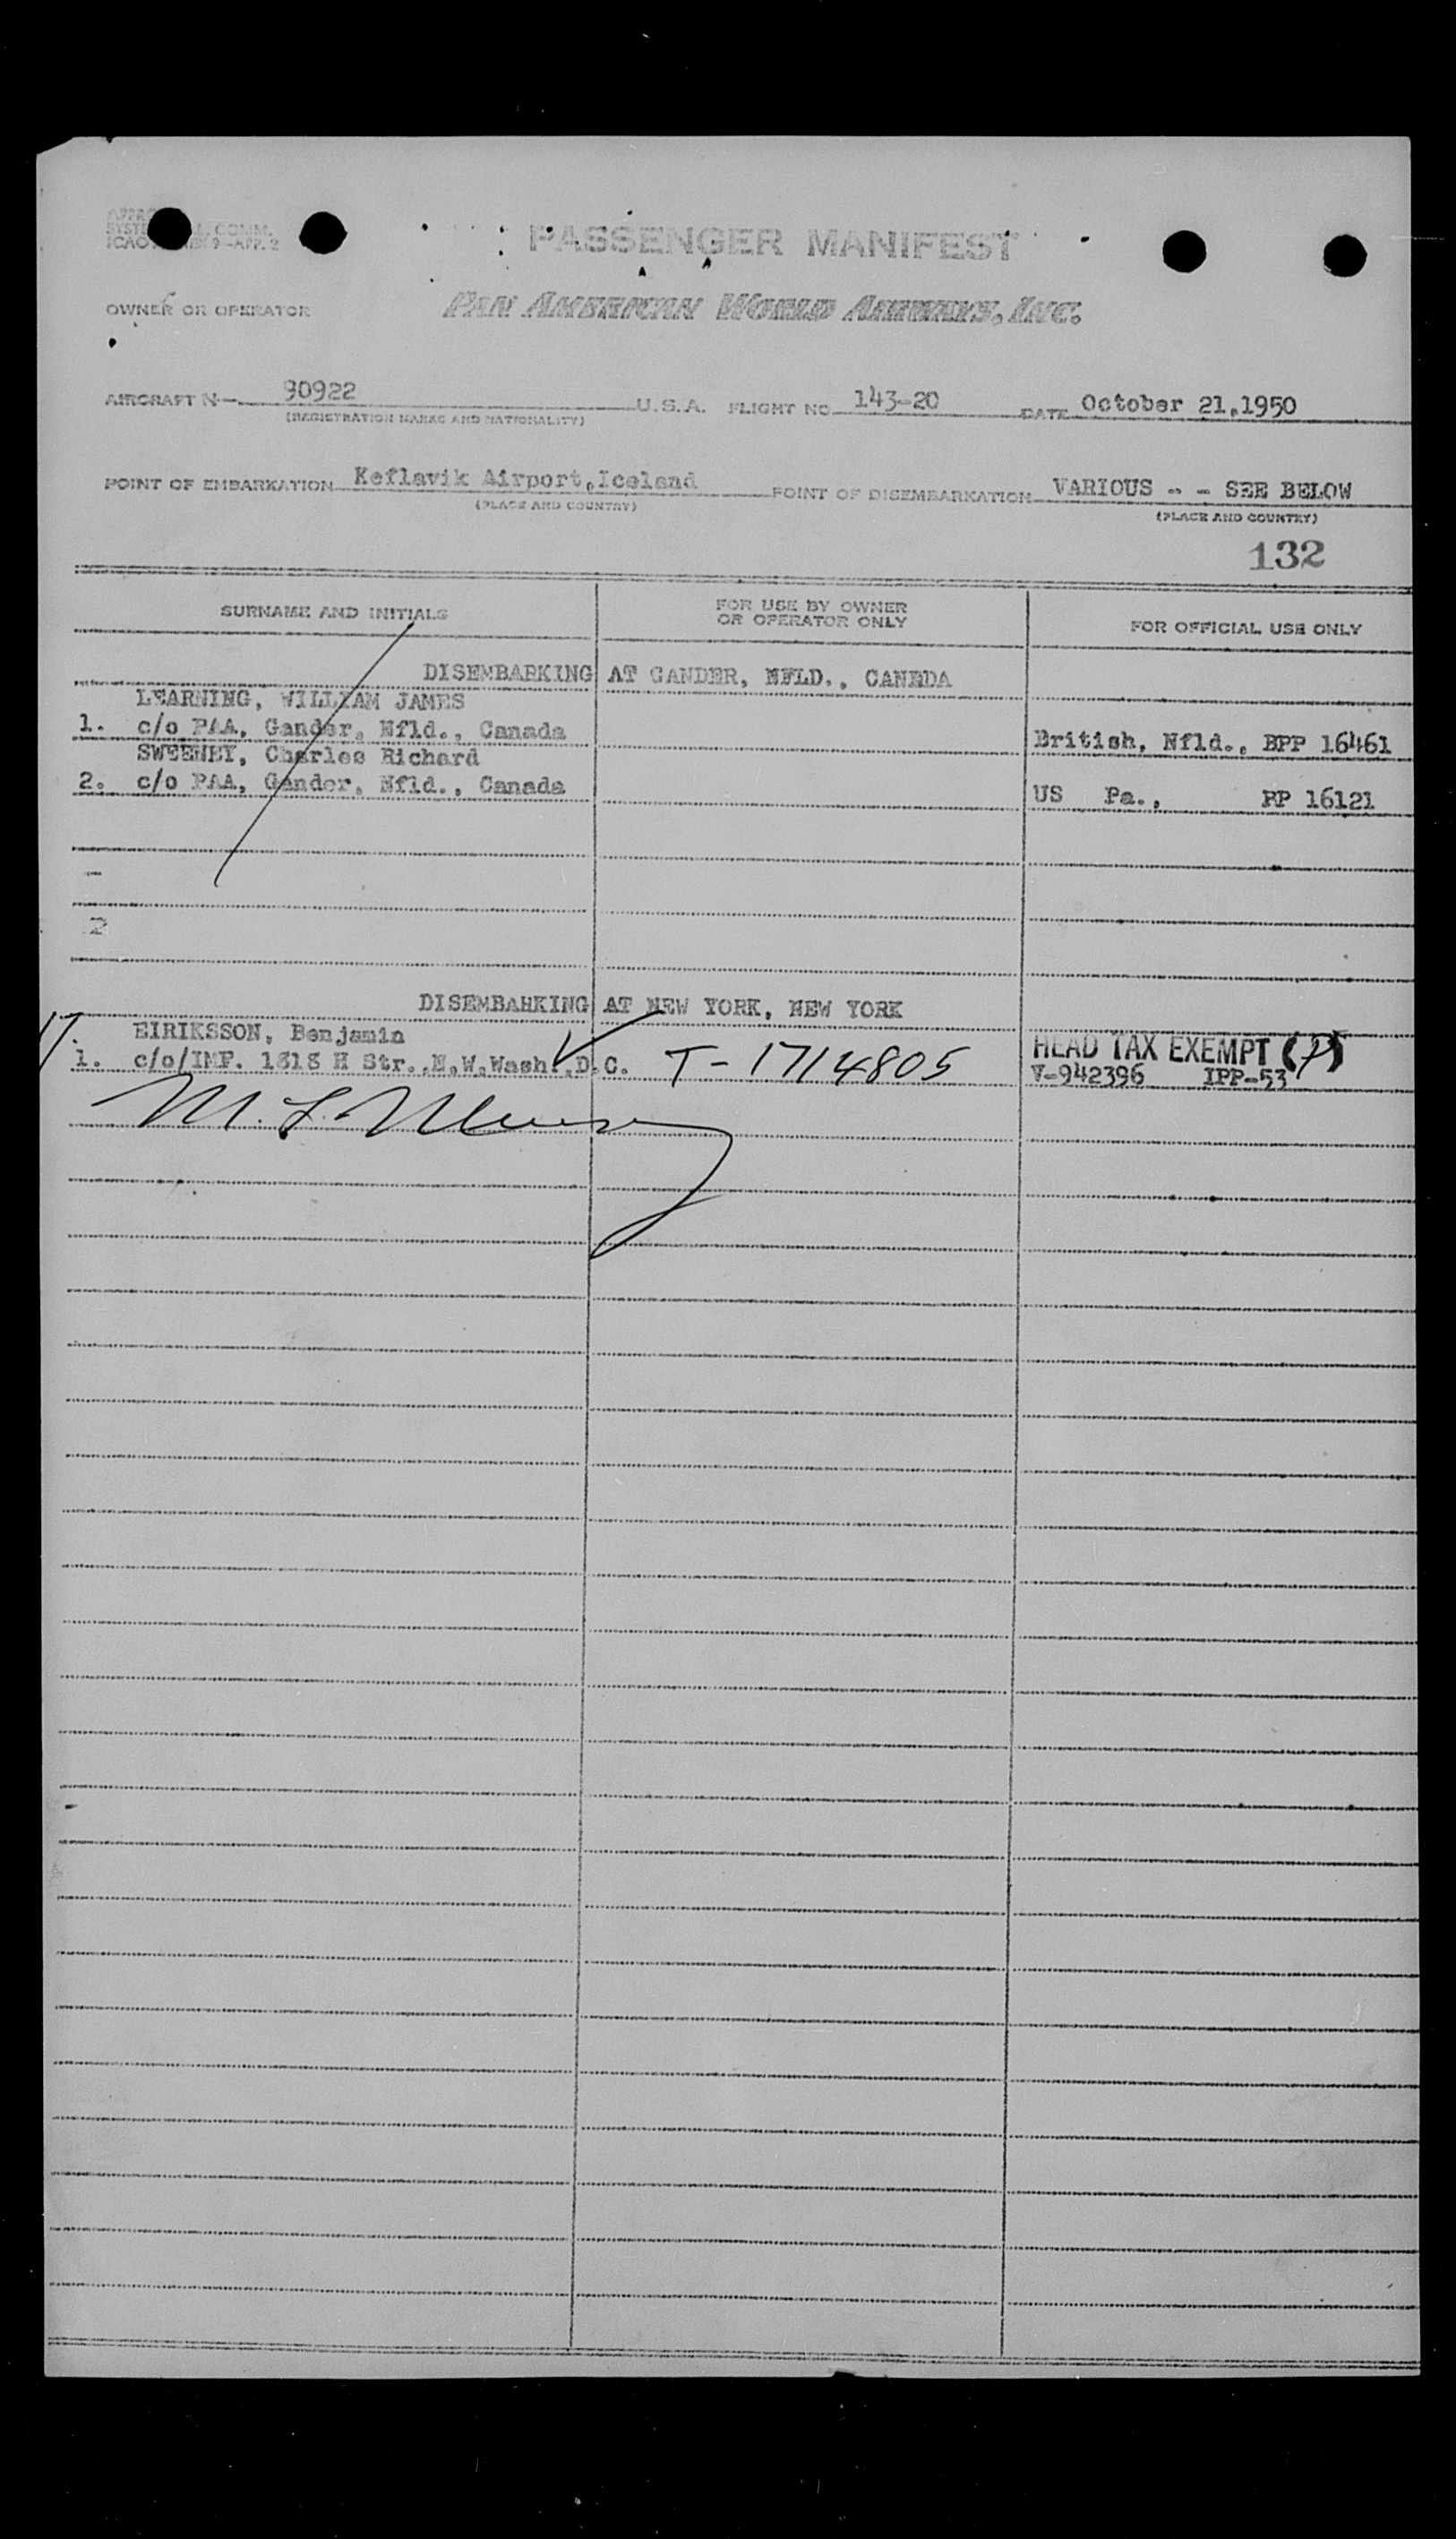 PASSENGER MANIFEST
OWNER OR OPERATOR PAN AMERICAN WORLD AIRWAYS, INC.
AIRCRAFT N- 90922 U.S.A. FLIGHT NO. 143-20 DATE October 21,1950
(REGISTRATION MARKS AND NATIONALITY)
POINT OF EMBARKATION Keflavik Airport,Iceland POINT OF DISEMBARKATION VARIOUS - - SEE BELOW
(PLACE AND COUNTRY) (PLACE AND COUNTRY)
132
SURNAME AND INITIALS FOR USE BY OWNER OR OPERATOR ONLY FOR OFFICIAL USE ONLY
DISEMBARKING AT GANDER, NFLD., CANADA
LEARNING, WILLIAM JAMES
1. c/o PAA, Gander, Nfld., Canada British, Nfld., BPP 16461
SWEENEY, Charles Richard
2. c/o PAA, Gander, Nfld., Canada US Pa., PP 16121
2
DISEMBARKING AT NEW YORK, NEW YORK
EIRIKSSON, Benjamin HEAD TAX EXEMPT
1. c/o/IMF. 1818 H Str.,N.W.Wash.,D.C. T-1714805 V-942396 IPP-53